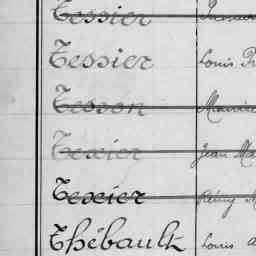 Tessier
Tessier Louis
Tesson Maurice
Texier Jean
Texier Rémy
Thébault Louis